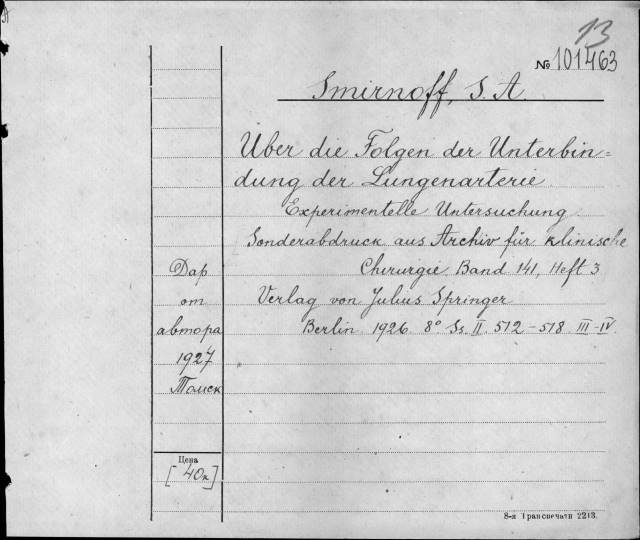 13
№ 101463
Smirnoff, S. A.
Über die Folgen der Unterbin=
dung der Lungenarterie.
Experimentelle Untersuchung.
Sonderabdruck aus Archiv für klinische
Chirurgie Band 141, Heft 3
Verlag von Julius Springer
Berlin 1926 8° Ss. II. 512-518. III-IV.
Дар
от
автора
1927
Томск
Цена
[40к]
8-я Транспечати 2213.